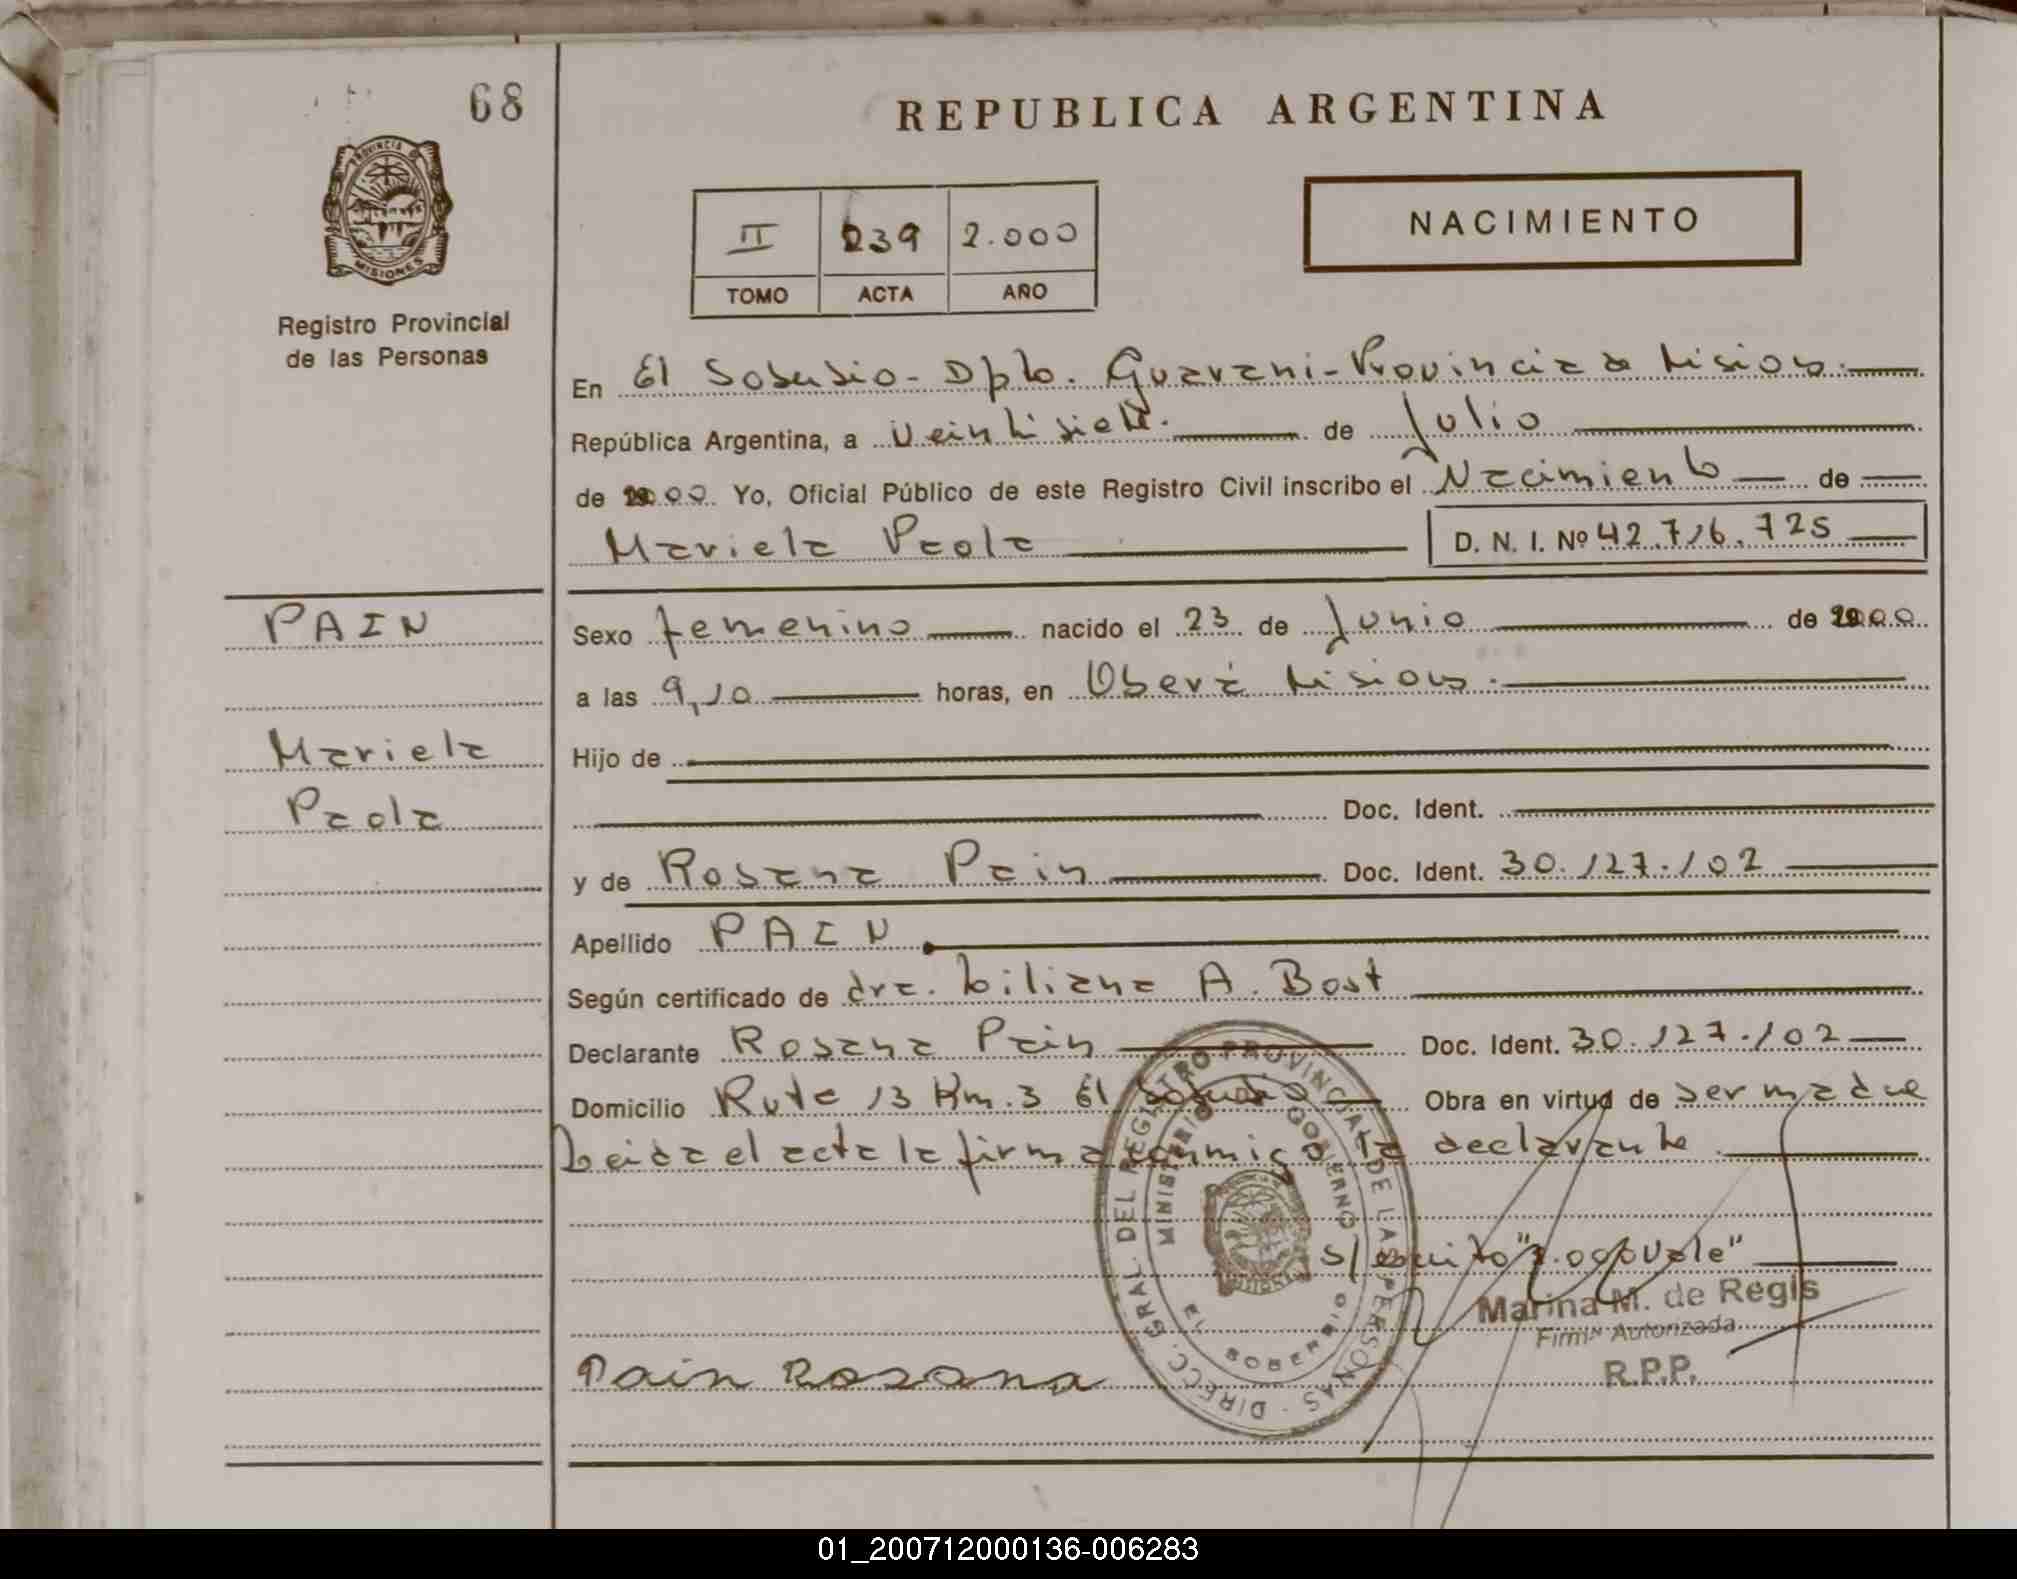 68
REPUBLICA ARGENTINA
PROVINCIA DE
MISIONES
NACIMIENTO
II 239 2.000
TOMO ACTA AÑO
Registro Provincial
de las Personas
En El Soberbio - Dpto. Guarani - Provincia de Misiones.
República Argentina, a veintisiete. de Julio
de 2000. Yo, Oficial Público de este Registro Civil inscribo el Nacimiento de
Mariela Paola D. N. I. Nº 42.716.725
PAIN
Sexo femenino nacido el 23 de Junio de 2000
a las 9,10 horas, en Oberá Misiones.
Mariela
Hijo de
Paola
Doc. Ident.
y de Rosana Pain Doc. Ident. 30.127.102
Apellido PAIN
Según certificado de dra. Liliana A. Bost
Declarante Rosana Pain Doc. Ident. 30.127.102
Domicilio Ruta 13 Km. 3 El Soberbio Obra en virtud de ser madre
Leida el acta la firma conmigo la declarante
DIRECC. GRAL. DEL REGISTRO PROVINCIAL DE LAS PERSONAS
MINISTERIO GOBIERNO
EL SOBERBIO
S/escrito "2.000 Vale"
Marina M. de Regis
Firma Autorizada
R.P.P.
Pain Rosana
01_200712000136-006283